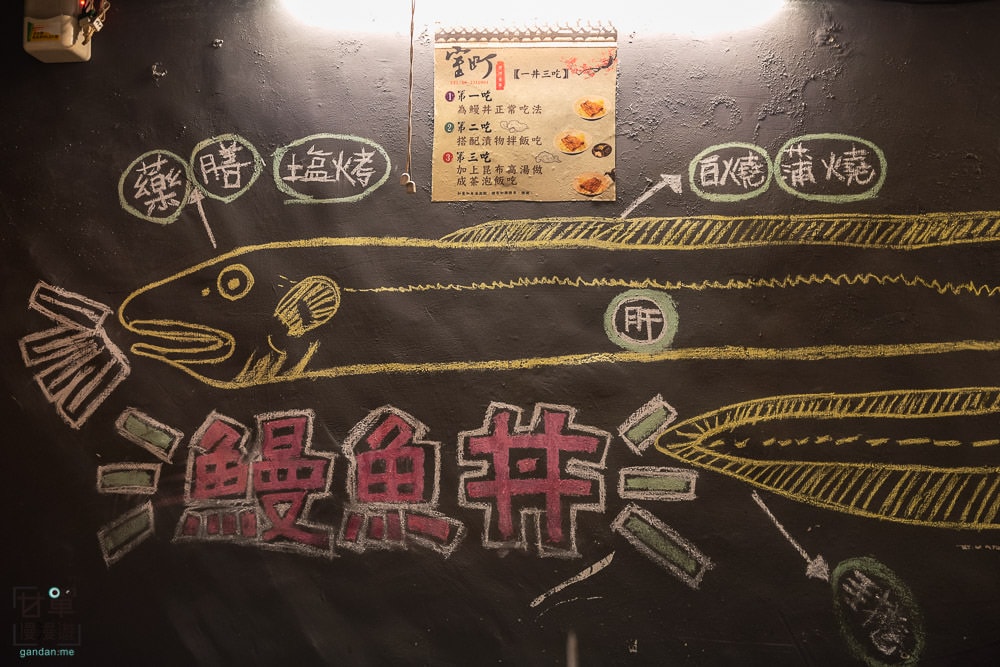 室町
【一丼三吃】
1 第一吃
為鰻丼正常吃法
2 第二吃
搭配漬物拌飯吃
3 第三吃
加上昆布高湯做
成茶泡飯吃
藥膳
塩烤
白燒
蒲燒
肝
鰻魚丼
gandan.me